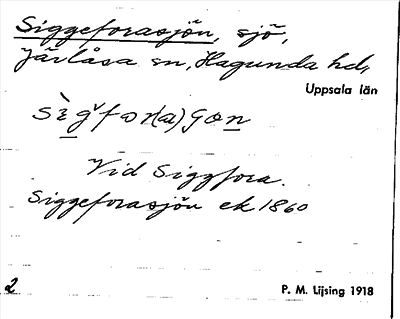 Siggeforasjön, sjö,
Järlåsa sn, Hagunda hd,
Uppsala län
Vid Siggfora.
Siggeforasjön ek 1860
2
P. M. Lijsing 1918